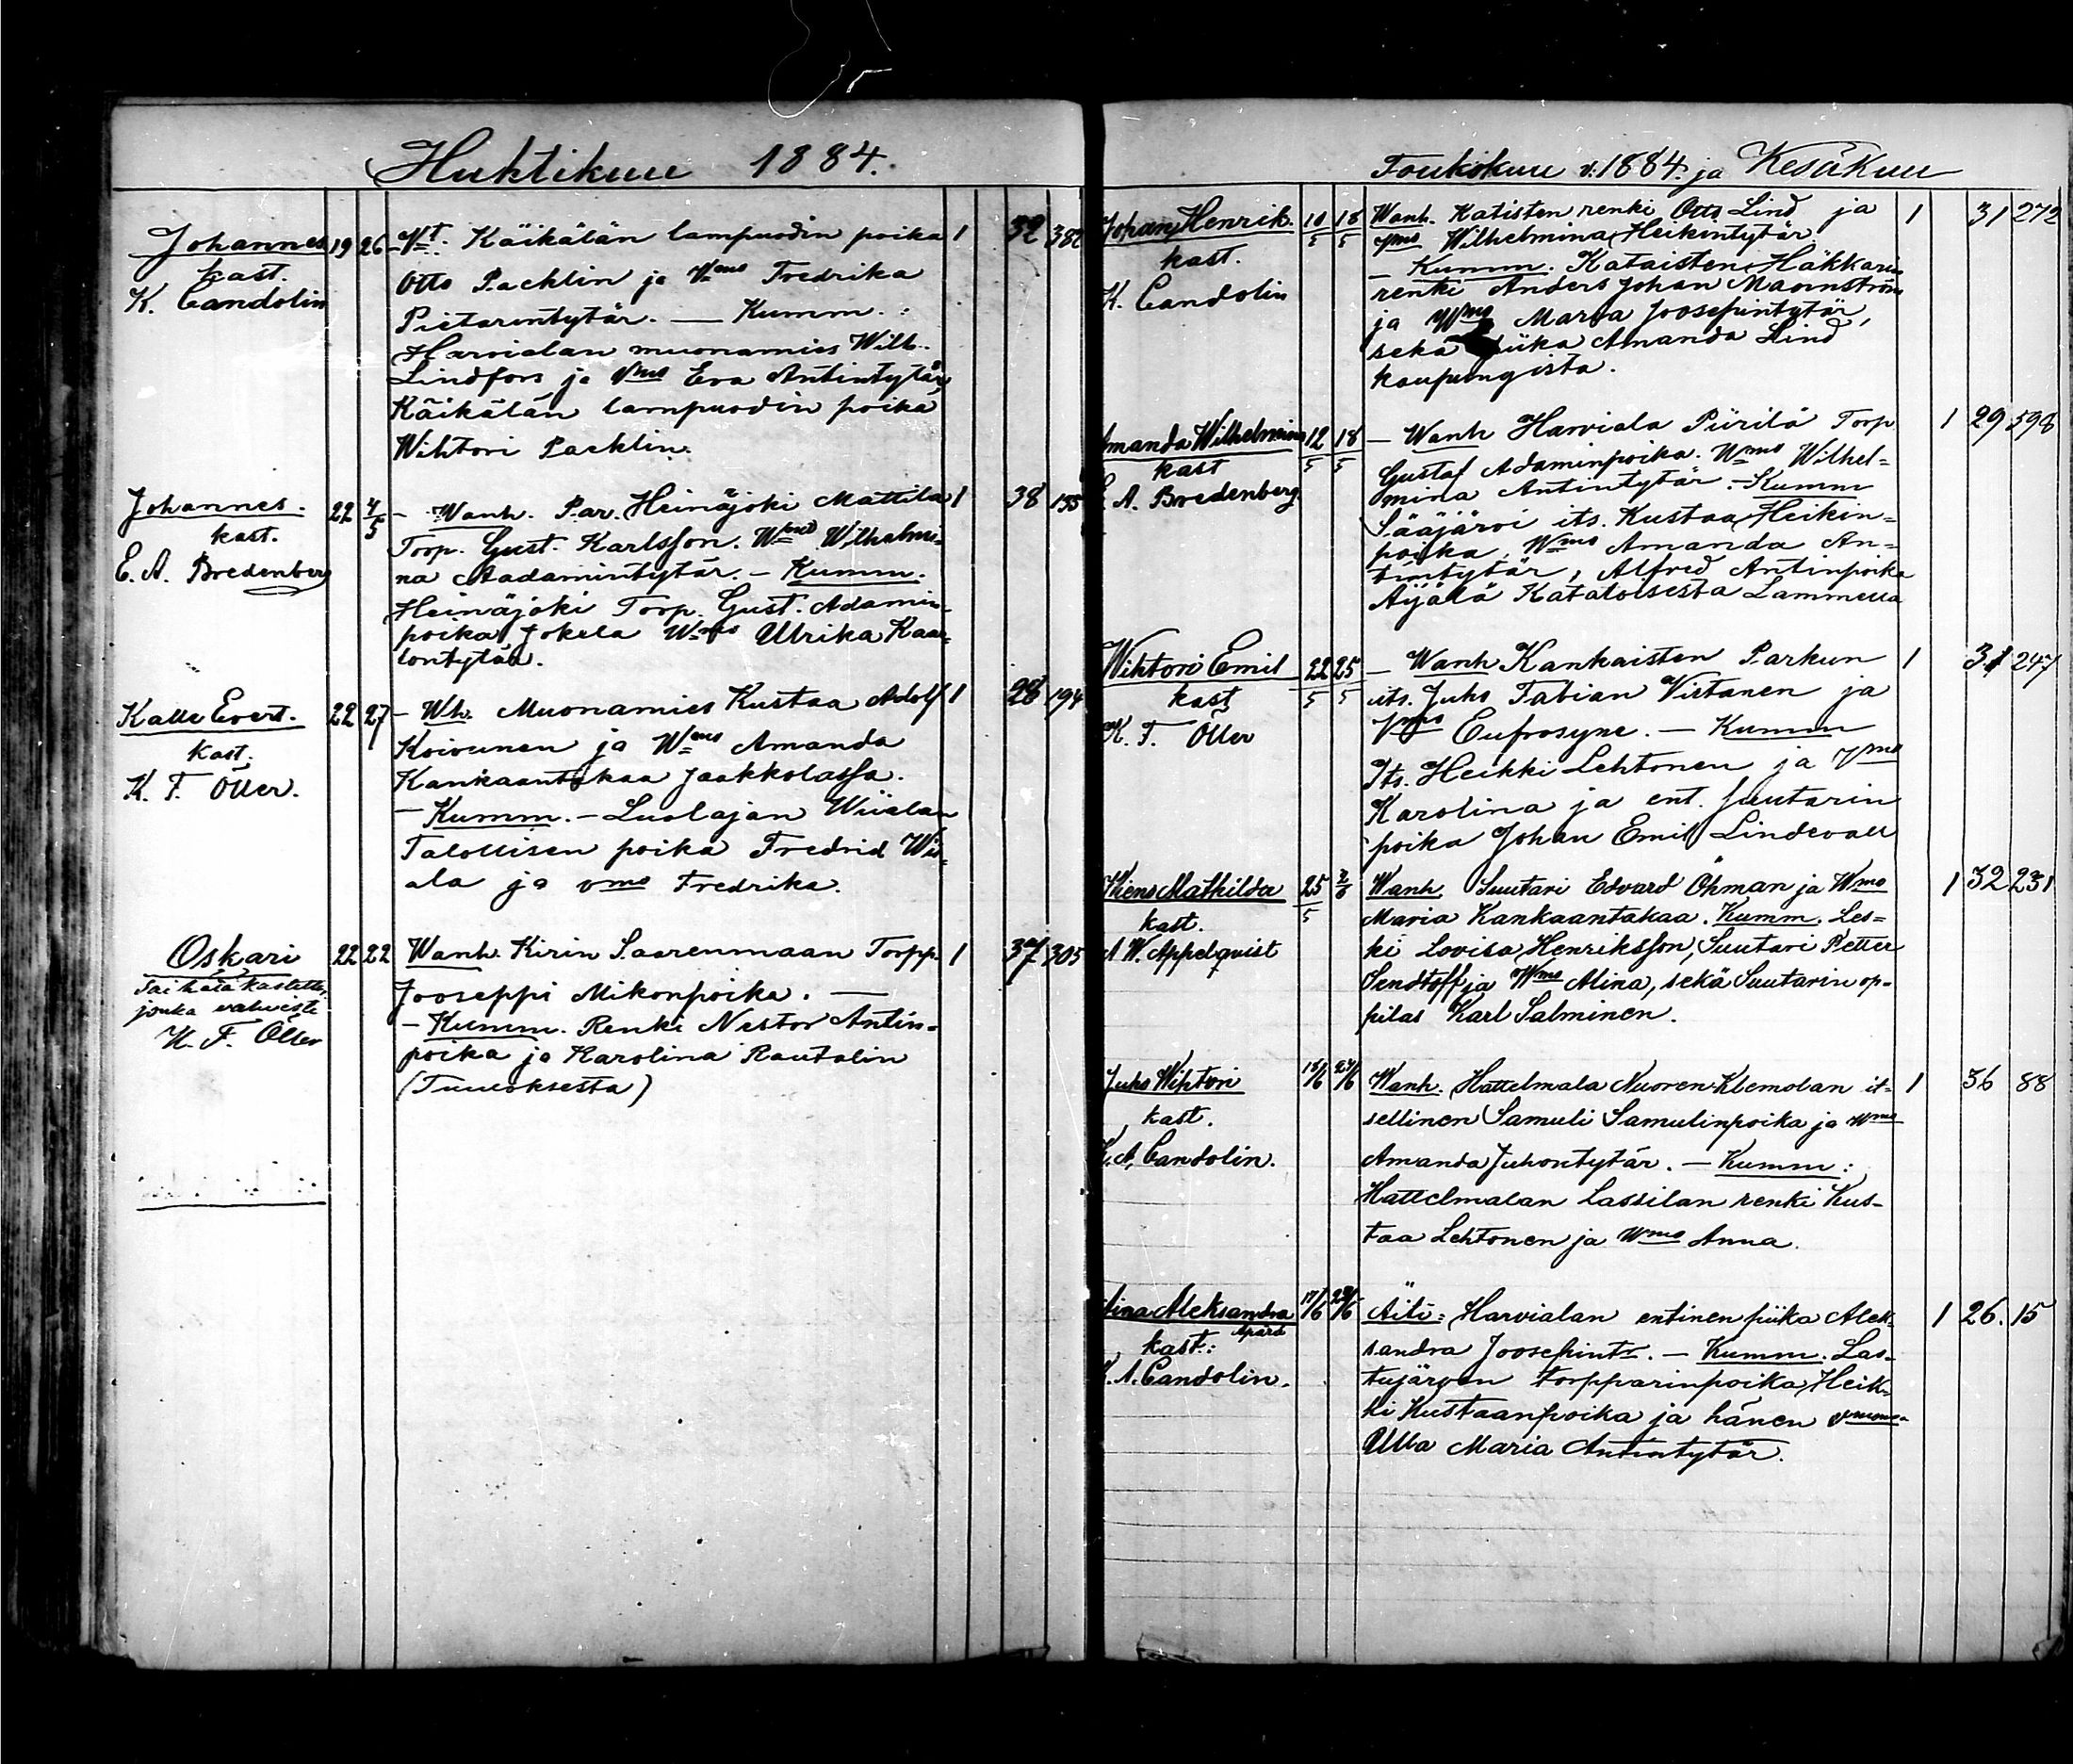 Huhtikuu 1884.
Johannes 19 26
kast.
K. Candolin
Vt. Käikälän lampuodin poika 1 32 382
Otto Packlin ja Vmo Fredrika
Pietarintytär. — Kumm. :
Harvialan muonamies Wilh.
Lindfors ja Vmo Eva Antintytär,
Käikälän lampuodin poika
Wihtori Packlin.
Johannes. 22 4/5
kast.
E. A. Bredenberg
- Wanh. Par. Heinäjoki Mattila 1 38 135
Torp. Gust. Karlsson. Wmo Wilhelmi-
na Aadamintytär. - Kumm.
Heinäjoki Torp. Gust. Adamin-
poika Jokela Wmo Ulrika Kaar-
lontytär.
Kalle Evert. 22 27
kast.
K. F. Öller.
- Wh. Muonamies Kustaa Adolf 1 28 194
Koivunen ja Wmo Amanda
Kankaantakaa Jaakkolassa.
- Kumm. - Luolajan Wiialan
Talollisen poika Fredrid Wii-
ala ja vmo Fredrika.
Oskari 22 22
kastettu,
jonka vahvisti
K. F. Öller
Wanh. Kirin Saarenmaan Torpp. 1 37 305
Jooseppi Mikonpoika. —
- Kumm. Renki Nestor Antin-
poika ja Karolina Rautalin
(Tuuloksesta)
Toukokuu v. 1884. ja Kesäkuu
Johan Henrik. 10/5 18/5
kast.
K. Candolin
Wanh. Katisten renki Otto Lind ja 1 31 272
Vmo Wilhelmina Heikintytär
- Kumm. Kataisten Häkkarin
renki Anders Johan
ja Wmo Maria Joosepintytär,
sekä piika Amanda Lind
kaupungista.
Amanda Wilhelmina 12/5 18/5
kast
E. A. Bredenberg
- Wanh Harviala Piirilä Torp. 1 29 598
Gustaf Adaminpoika. Wmo Wilhel=
mina Antintytär. - Kumm
Sääjärvi its. Kustaa Heikin=
poika, Wmo Amanda An=
tintytär, Alfred Antinpoika
Äijälä Lammella
Wihtori Emil 22/5 25/5
kast
K. F. Öller
- Wanh Kankaisten Parkun 1 31 247
its. Juho Fabian Virtanen ja
Vmo Eufrosyne. - Kumm
Its. Heikki Lehtonen ja Vmo
Karolina ja ent. Suutarin
poika Johan Emil Lindevall
Mathilda 25/5 2/6
kast.
A W. Appelqvist
Wanh. Suutari Edvard Öhman ja Wmo 1 32 231
Maria Kankaantakaa. Kumm. Les=
ki Lovisa Henriksson, Suutari Petter
Sendtoff ja Wmo Alina, sekä Suutarin op-
pilas Karl Salminen.
Juho Wihtori
kast.
K. A. Candolin.
Wanh. Hattelmala Nuoren Klemolan it- 1 36 88
sellinen Samuli Samulinpoika ja Wmo
Amanda Juhontytär. - Kumm:
Hattelmalan Lassilan renki Kus-
taa Lehtonen ja Wmo Anna.
Aina Aleksandra 17/6
Äpärä
kast.:
K. A. Candolin.
Äiti: Harvialan entinen piika Alek- 1 26. 15
sandra Joosepintr. - Kumm. Las-
tujärven torpparinpoika, Heik-
ki Kustaanpoika ja hänen
Ulla Maria Antintytär.